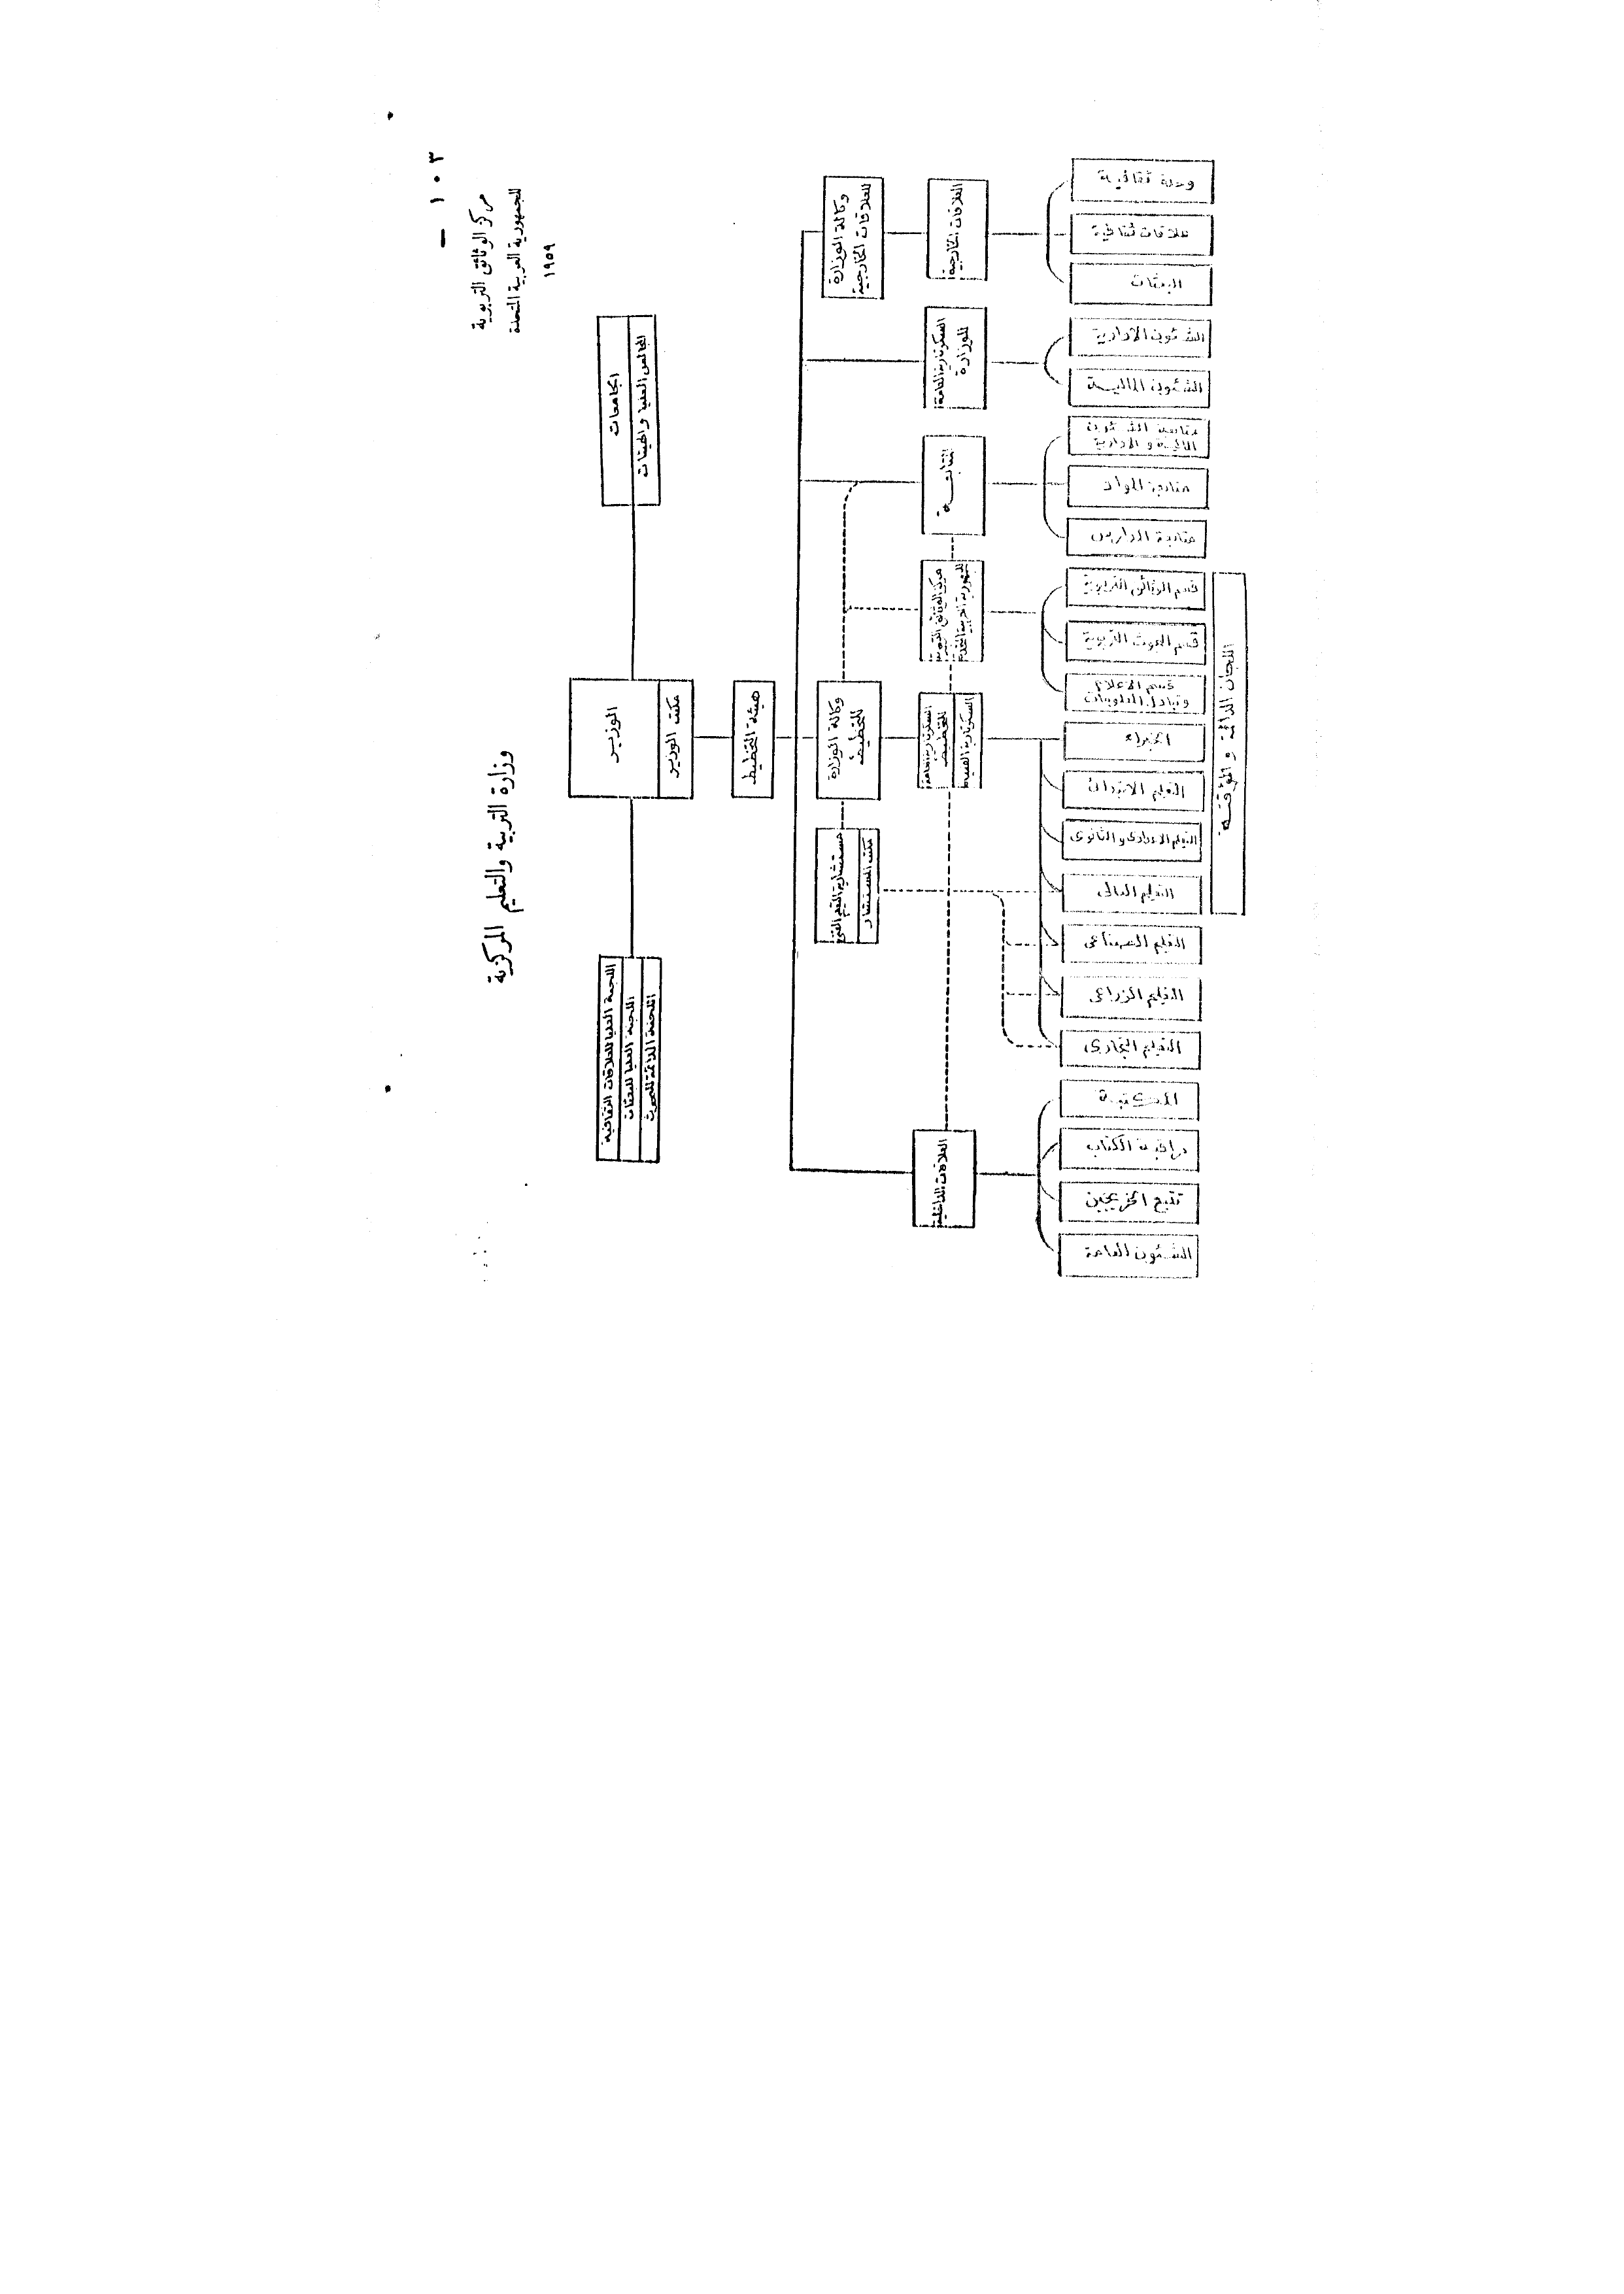 ١٠٣ –
مركز الوثائق التربوية
للجمهورية العربية المتحدة
١٩٥٩
وزارة التربية والتعليم المركزية
الجامعات
المجالس العليا والهيئات
الوزير
مكتب الوزير
اللجنة العليا للعلاقات الثقافية
اللجنة العليا للبعثات
اللجنة الدائمة للبحوث
هيئة التخطيط
وكالة الوزارة
للعلاقات الخارجية
وكالة الوزارة
للتخطيط
مستشارية التعليم الفنى
مكتب المستشار
العلاقات الخارجية
السكرتارية العامة
للوزارة
المتابعة
مركز الوثائق التربوية
للجمهورية العربية المتحدة
السكرتارية العامة
للتخطيط
السكرتارية الفنية
العلاقات الداخلية
وحدة ثقافية
علاقات ثقافية
البعثات
الشئون الادارية
الشئون المالية
متابعة الشئون
المالية والادارية
متابعة المواد
متابعة المدارس
قسم الوثائق التربوية
قسم البحوث التربوية
قسم الاعلام
وتبادل المعلومات
الخبراء
التعليم الابتدائى
التعليم الاعدادى والثانوى
التعليم العالى
التعليم الصناعى
التعليم الزراعى
التعليم التجارى
المكتبة
مراقبة الكتاب
تتبع الخريجين
الشئون العامة
اللجان الدائمة والمؤقتة